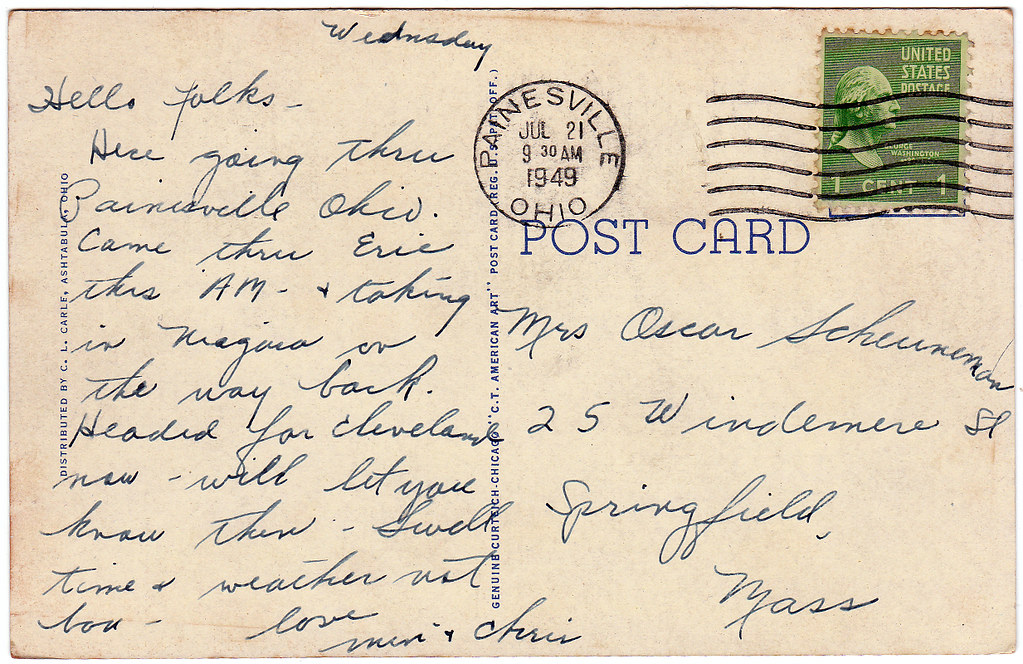 Wednsday
Hello folks -
Here going thru
Painesville Ohio.
Came thru Erie
this AM - + taking
in Niagara on
the way back.
Headed for Cleveland
now - will let you
know then - Swell
time + weather not
bad -
love
+ Chris
DISTRIBUTED BY C. L. CARLE, ASHTABULA, OHIO
GENUINE CURTEICH-CHICAGO "C.T. AMERICAN ART" POST CARD (REG. U. S. PAT. OFF.)
PAINESVILLE
JUL 21
9 30 AM
1949
OHIO
UNITED
STATES
POSTAGE
GEORGE
WASHINGTON
1 CENT 1
POST CARD
Mrs Oscar Scheuneman
25 Windemere St
Springfield,
Mass